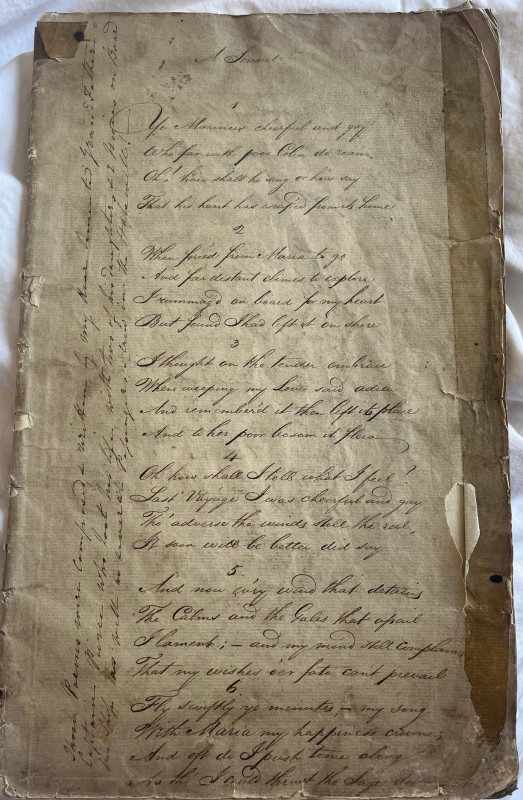 A Sonnet
1
Ye Mariners cheerful and gay
Who far with poor Colin do roam,
Oh! how shall he sing or how say
That his heart has escap'd from its home
2
When forced from Maria to go
And far distant climes to explore
I rummag'd on board for my heart
But found I had left it on shore
3
I thought on the tender embrace
When weeping my Love said adieu
And remember'd it then left its place
And to her poor bosom it flew
4
Oh how shall I tell what I feel!
Last Voyage I was cheerful and gay
Tho' adverse the winds still the
It soon will be better did say
5
And now ev'ry wind that detains
The Calms and the Gales that assail
I lament; – and my mind still complains
That my wishes o'er fate cant prevail
6
Fly swiftly ye minutes, – my song
With Maria my happiness crown;
And oft do I push time along
As tho' I could the
These Poems were composed & written by my dear Grand Father
Captain who lost his life with two of his daughters & 2 on Board
his Ship